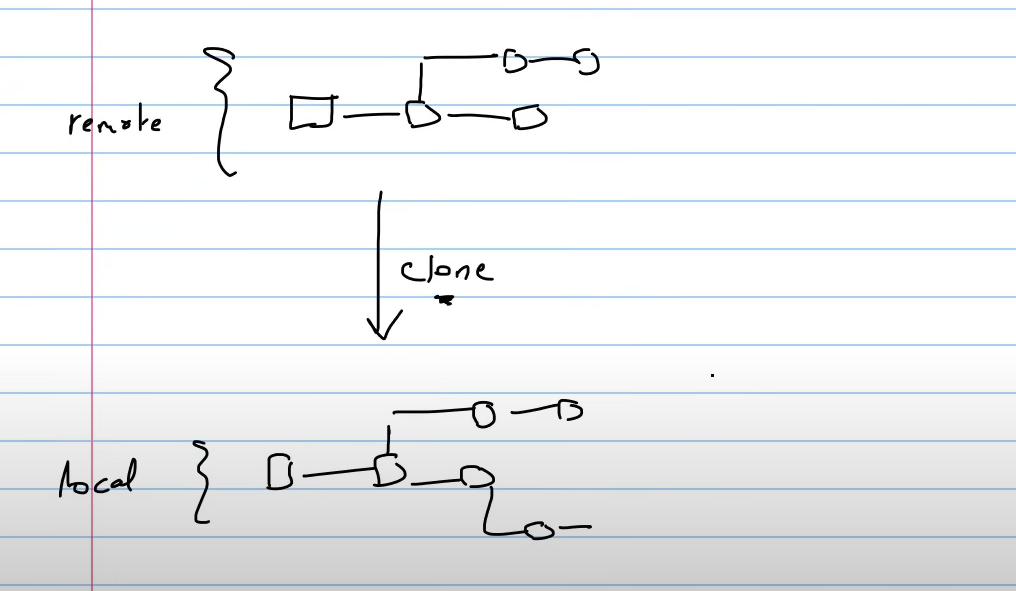 remote
clone
local